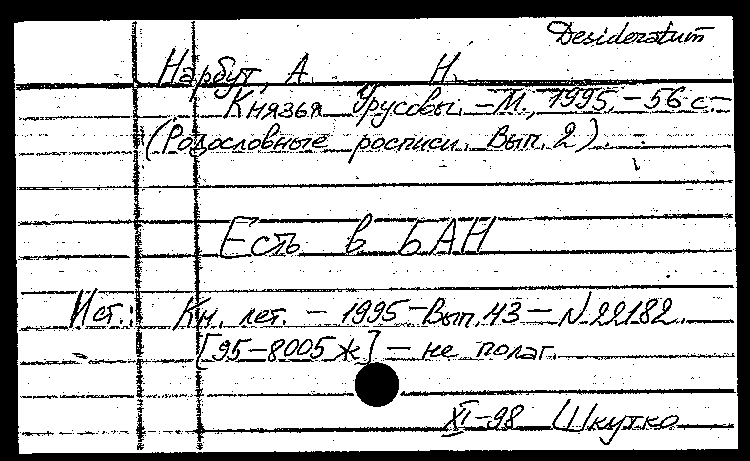 Desideratum
Нарбут, А. Н.
Князья Урусовы. – М., 1995. – 56 с. –
(Родословные росписи. Вып. 2).
Есть в БАН
Ист.: Кн. лет. – 1995 – Вып. 43 – N 22182.
[95-8005ж] – не полаг.
XI-98 Шкутко